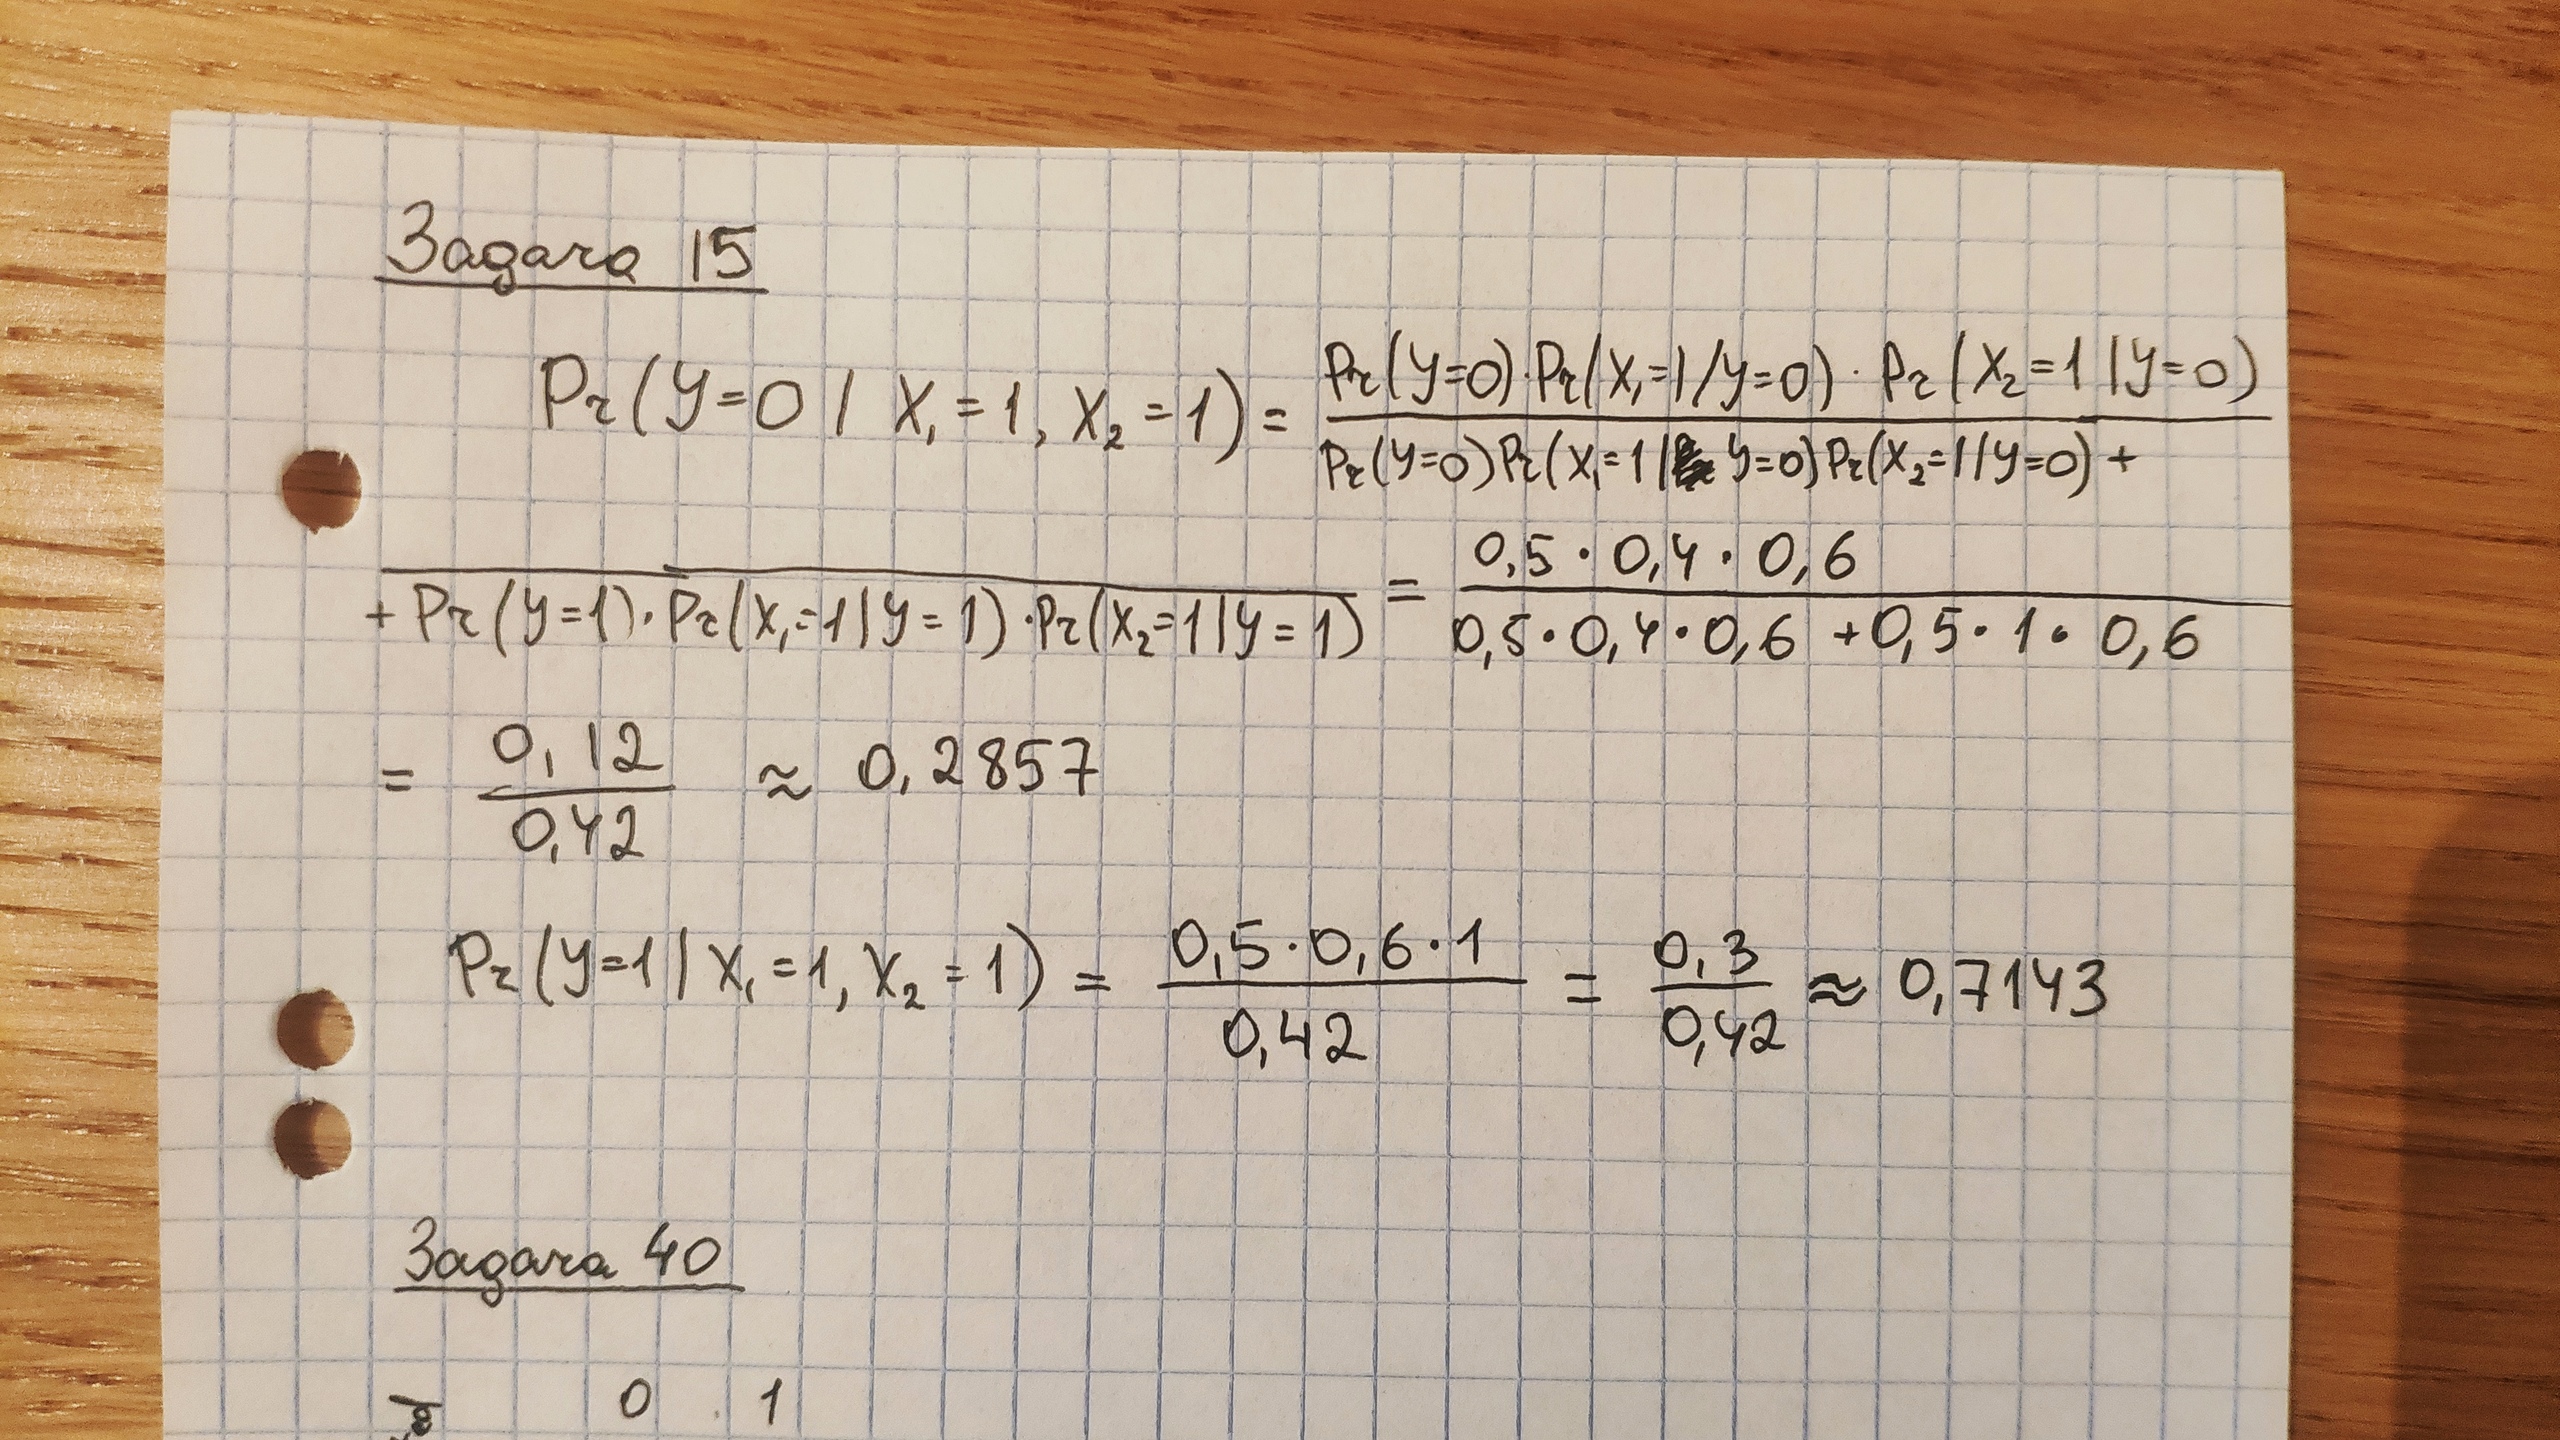 Задача 15
Pr(Y=0 | X₁=1, X₂=1) = Pr(Y=0)·Pr(X₁=1/Y=0)·Pr(X₂=1|Y=0)
Pr(Y=0)Pr(X₁=1|Y=0)Pr(X₂=1|Y=0) +
+ Pr(Y=1)·Pr(X₁=1|Y=1)·Pr(X₂=1|Y=1) = 0,5·0,4·0,6
0,5·0,4·0,6 + 0,5·1·0,6
= 0,12 ≈ 0,2857
0,42
Pr(Y=1 | X₁=1, X₂=1) = 0,5·0,6·1 = 0,3 ≈ 0,7143
0,42 0,42
Задача 40
0 1